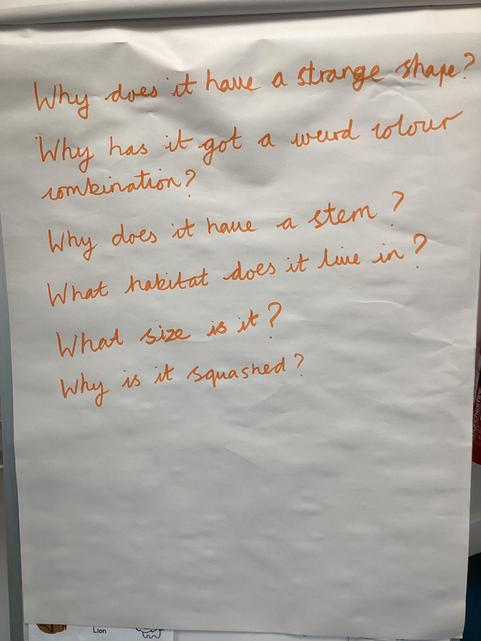 Why does it have a strange shape?
Why has it got a weird colour
combination?
Why does it have a stem?
What habitat does it live in?
What size is it?
Why is it squashed?
Lion